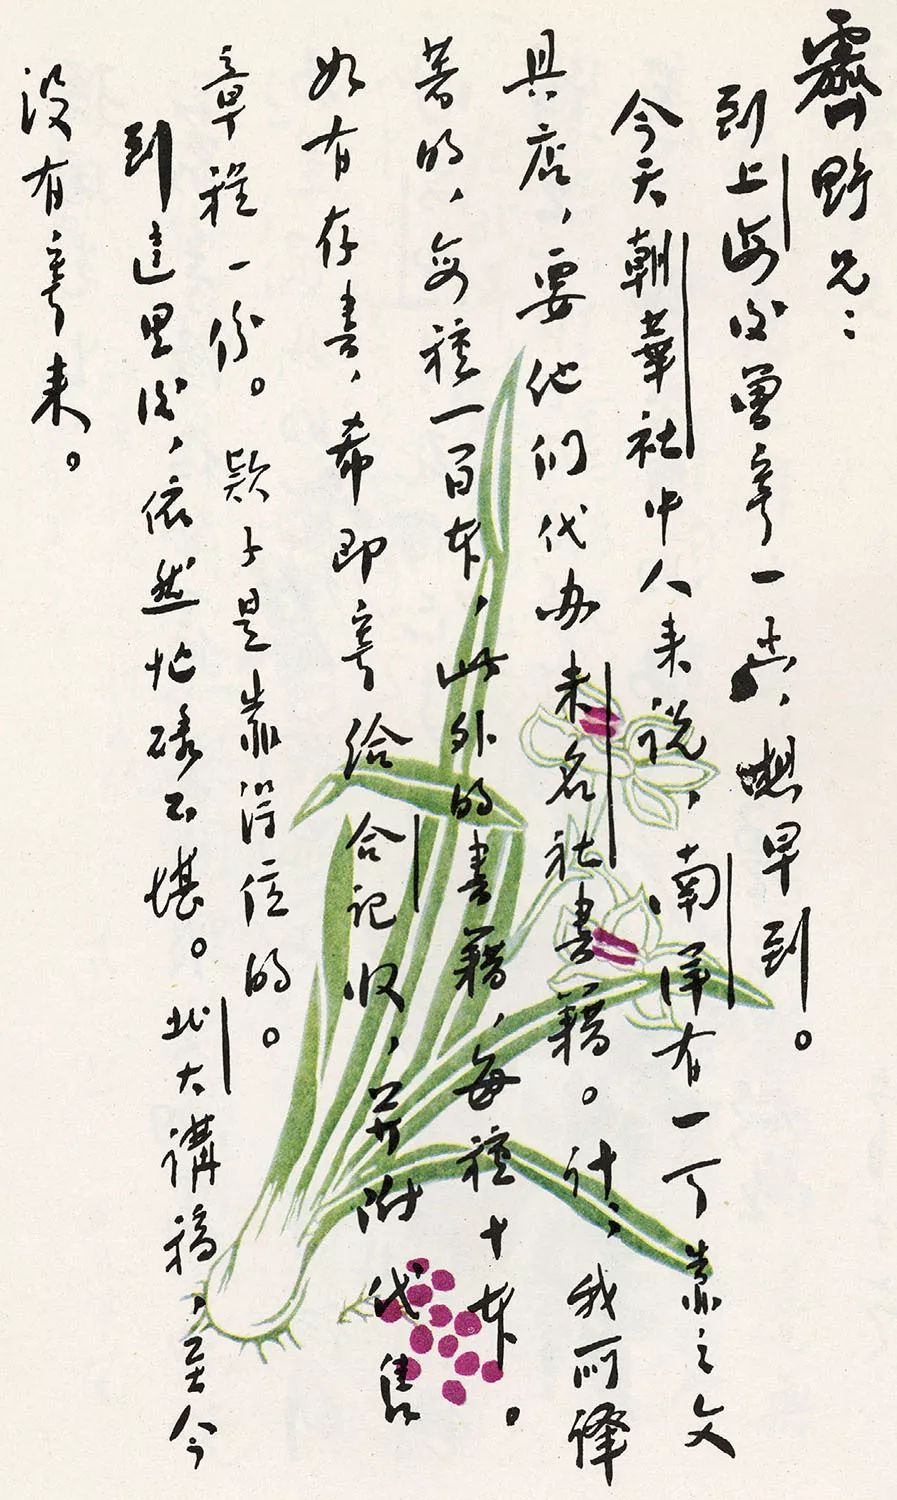 霽野兄：
到上海後曾寄一函，想早到。
今天朝華社中人来说，南洋有一可靠之文
具店，要他们代办未名社書籍。计，我所译
著的，每種一百本，此外的書籍，每種十本。
如有存書，希即寄给合记收，并附代售
章程一份。款子是靠得住的。
到這里後，依然忙碌不堪。北大講稿，至今
没有寄来。